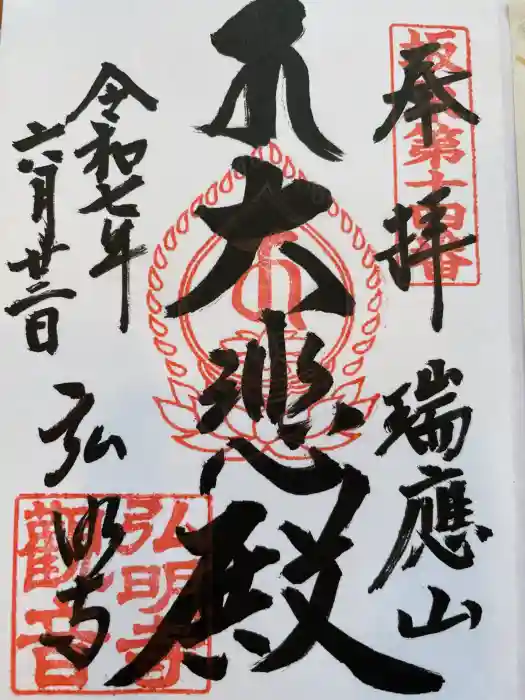 奉拝
坂東第十四番
瑞應山
大悲殿
令和七年
六月廿三日
弘明寺
弘明寺
観音